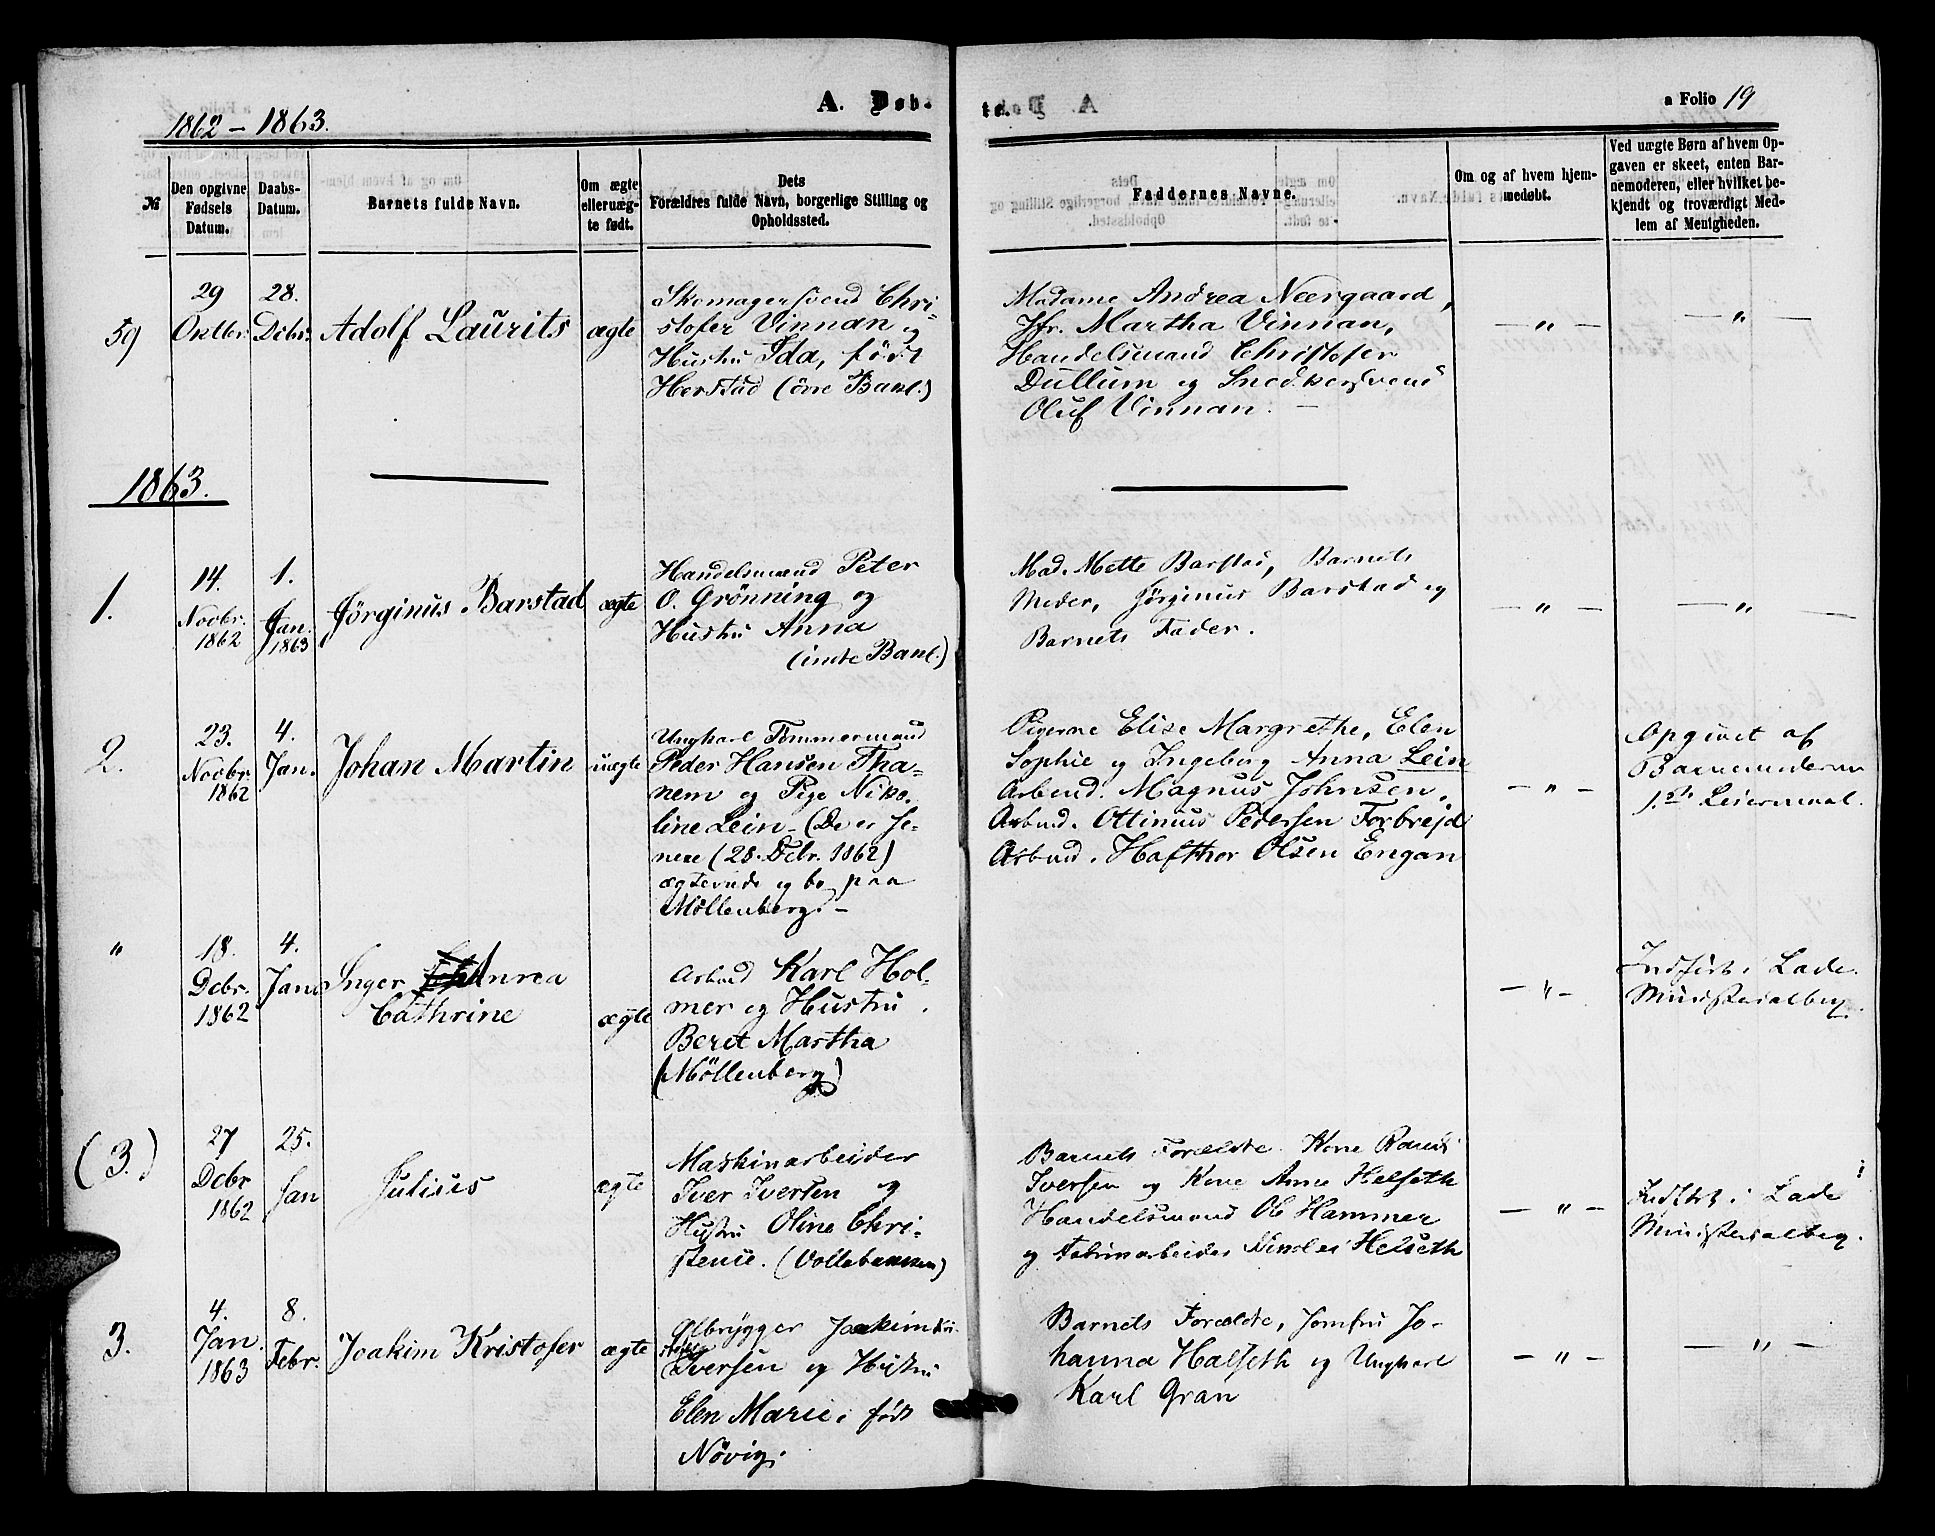 1862 - 1863.
A. Døb-
te.
a Folio 19
№
Den opgivne
Fødsels
Datum.
Daabs-
Datum.
Barnets fulde Navn.
Om ægte
elleruæg-
te født.
Dets
Forældres fulde Navn, borgerlige Stilling og
Opholdssted.
Faddernes Navne.
Om og af hvem hjem-
medøbt.
Ved uægte Børn af hvem Op-
gaven er skeet, enten Bar-
nemoderen, eller hvilket be-
kjendt og troværdigt Med-
lem af Menigheden.
59
29
Oktbr.
28.
Decbr.
Adolf Laurits
ægte
Skomagersvend Chri-
stofer Vinnan og
Hustru Ida, født
Herstad (övre Bakl.)
Madame Andrea Neergaard,
Jfr. Martha Vinnan,
Handelsmand Christofer
Dullum og Snedkersvend
Oluf Vinnan. -
- " -
- " -
1863.
1.
14.
Novbr.
1862
1.
Jan.
1863
Jörginus Barstad
ægte
Handelsmand Peter
O. Grönning og
Hustru Anna
(indre Bakl.)
Mad. Mette Barstad, Barnets
Moder, Jörginus Barstad og
Barnets Fader.
- " -
- " -
2.
23.
Novbr.
1862
4.
Jan.
Johan Martin
uægte
Ungkarl Tömmermand
Peder Hansen Tha-
nem og Pige Niko-
line Lein - (De er se-
nere (28. Decbr. 1862)
ægteviede og bo paa
Möllenberg. -
Pigerne Elise Margrethe, Elen
Sophie og Ingeborg Anna Lein
Arbmd. Magnus Johnsen,
Arbmd. Ottinius Pedersen Forbrejd
Arbmd. Hafthor Olsen Engan
- " -
Opgivet af
Barnemoderen
1ste Leiermaal.
"
18.
Debr.
1862
4.
Janr
Inger Anrea
Cathrine
ægte
Arbmd Karl Hol-
mer og Hustru
Beret Martha
(Möllenberg)
- " -
Indført i Lade
Ministerialbog.
(3.)
27
Debr
1862
25.
Jan
Julius
ægte
Maskinarbeider
Iver Iversen og
Hustru Oline Chri-
stense. (Vollabakken)
Barnets Forældre. Kone Randi
Iversen og Kone Anne Helseth
Handelsmand Ole Hammer
og Fabrikarbeider Nicolai Helseth
- " -
Indført i Lade
Ministerialbog.
3.
4.
Jan.
1863
8.
Febr.
Joakim Kristofer
ægte
Ølbrygger Joakim Kri-
stofer
Iversen og Hustru
Elen Marie, født
Növig.
Barnets Forældre, Jomfru Jo-
hanna Halseth og Ungkarl
Karl Gran
- " -
- " -